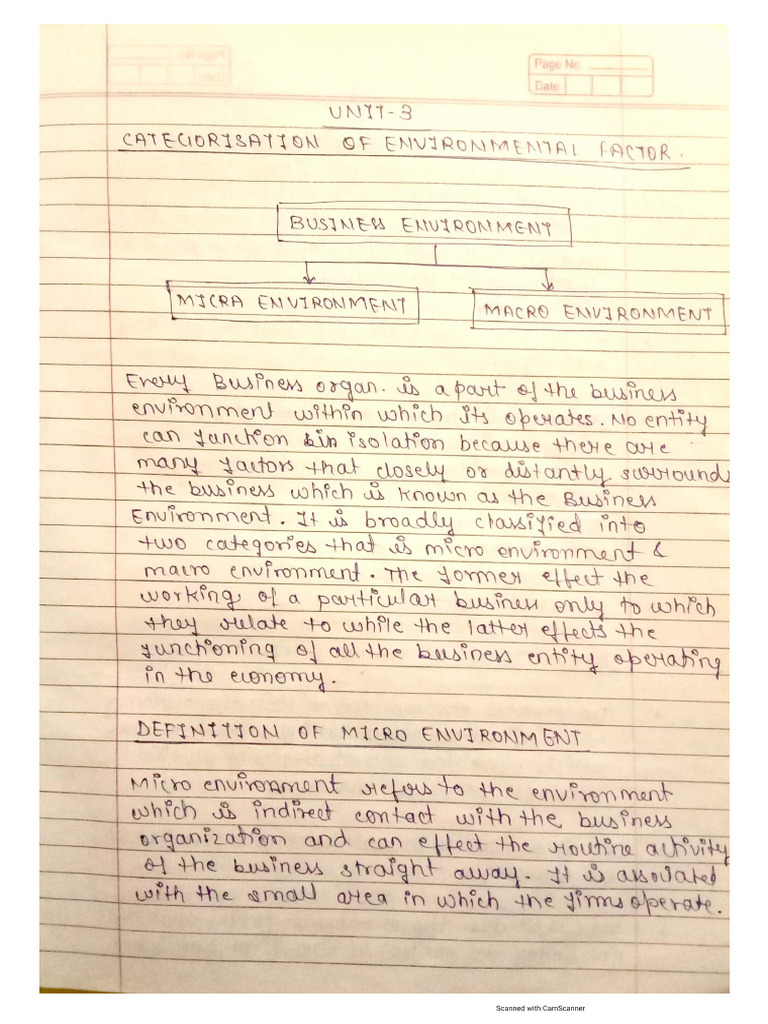 Page No.
Date
UNIT-3
CATEGIORISATION OF ENVIRONMENTAL FACTOR.
BUSINESS ENVIRONMENT
MICRA ENVIRONMENT
MACRO ENVIRONMENT
Every Business organ. is a part of the business
environment within which its operates. No entity
can function in isolation because there are
many factors that closely or distantly surrounds
the business which is known as the Business
Environment. It is broadly classified into
two categories that is micro environment &
macro environment. The former effect the
working of a particular business only to which
they relate to while the latter effects the
functioning of all the business entity operating
in the economy.
DEFINITION OF MICRO ENVIRONMENT
Micro environment refers to the environment
which is indirect contact with the business
organization and can effect the routine activity
of the business straight away. It is associated
with the small area in which the firms operate.
Scanned with CamScanner